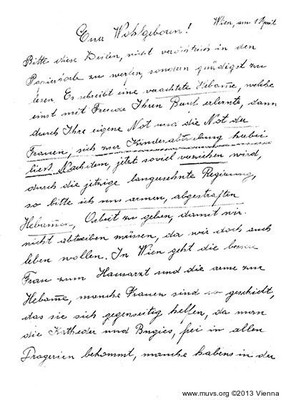 Wien, am 1 April
Euer Wohlgeboren!
Bitte diese Zeilen, nicht in den
Papierkorb zu werfen, sondern gnädigst zu
lesen. Es schreibt eine Hebamme, welche
einst mit Freude Ihren Bund erlernte, dann
durch Ihre eigene Not und die Not der
Frauen, sich zur Kinderabtreibung
jetzt soviel verziehen wird,
durch die jetzige langersehnte Regierung,
so bitte ich uns armen, abgestraften
Hebamme, zu geben, damit wir
nicht abtreiben müssen, da wir doch auch
leben wollen. In Wien geht die bessere
Frau zum Hausarzt und die arme zur
Hebamme, manche Frauen sind so geschickt,
das sie sich gegenseitig helfen, da man
die Katheder und Bugies, frei in allen
Drogerien bekommt, manche habens in der
www.muvs.org ©2013 Vienna